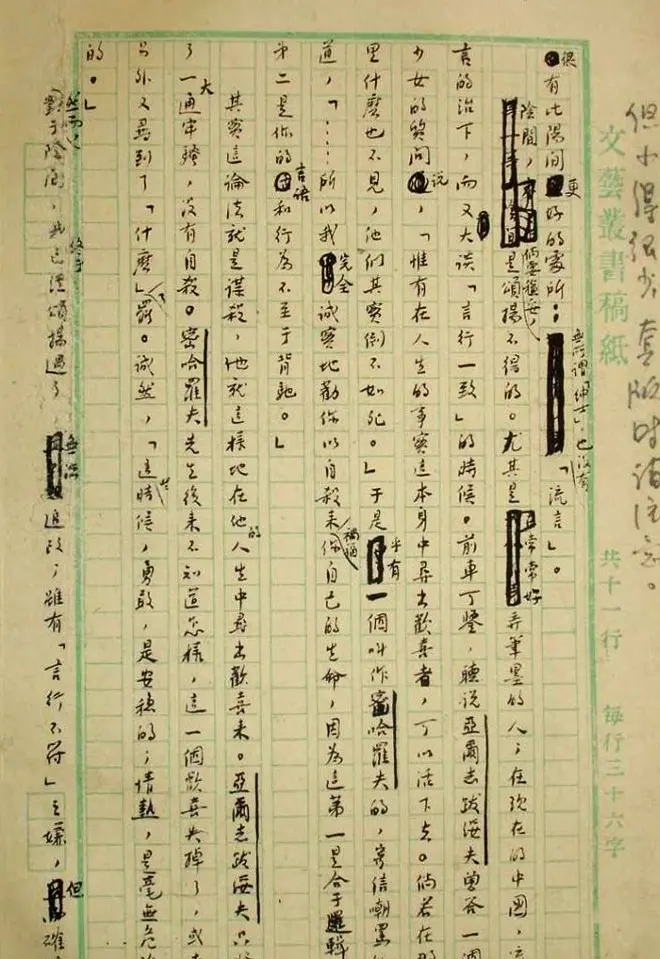 文藝叢書稿紙 共十行 每行三十六字
很有比陽間更好的處所;無所謂「紳士」,也沒有「流言」。
陰間,倘要穩妥,是頌揚不得的。尤其是常常好弄筆墨的人,在現在的中國,流
言的治下,而又大談「言行一致」的時候。前車可鑒,聽說亞爾志跋綏夫曾答一個
少女的質問說,「惟有在人生的事實這本身中尋出歡喜者,可以活下去。倘若在那
里什麼也不見,他們其實倒不如死。」于是乎有一個叫作密哈羅夫的,寄信嘲罵
道,「……所以我完全誠實地勸你以自殺來禍福你自己的生命,因為這第一是合于邏輯
第二是你的言語和行為不至于背馳。」
其實這論法就是謀殺,他就這樣地在他的人生中尋出歡喜來。亞爾志跋綏夫只
了一大通牢騷,沒有自殺。密哈羅夫先生後來不知道怎樣,這一個歡喜失掉了,或
另外又尋到了「什麼」了罷。誠然,「這些時候,勇敢,是安穩的;情熱,是毫無危
的。」
然而,對于陰間,我終于已經頌揚過了,無從追改;雖有「言行不符」之嫌,但確